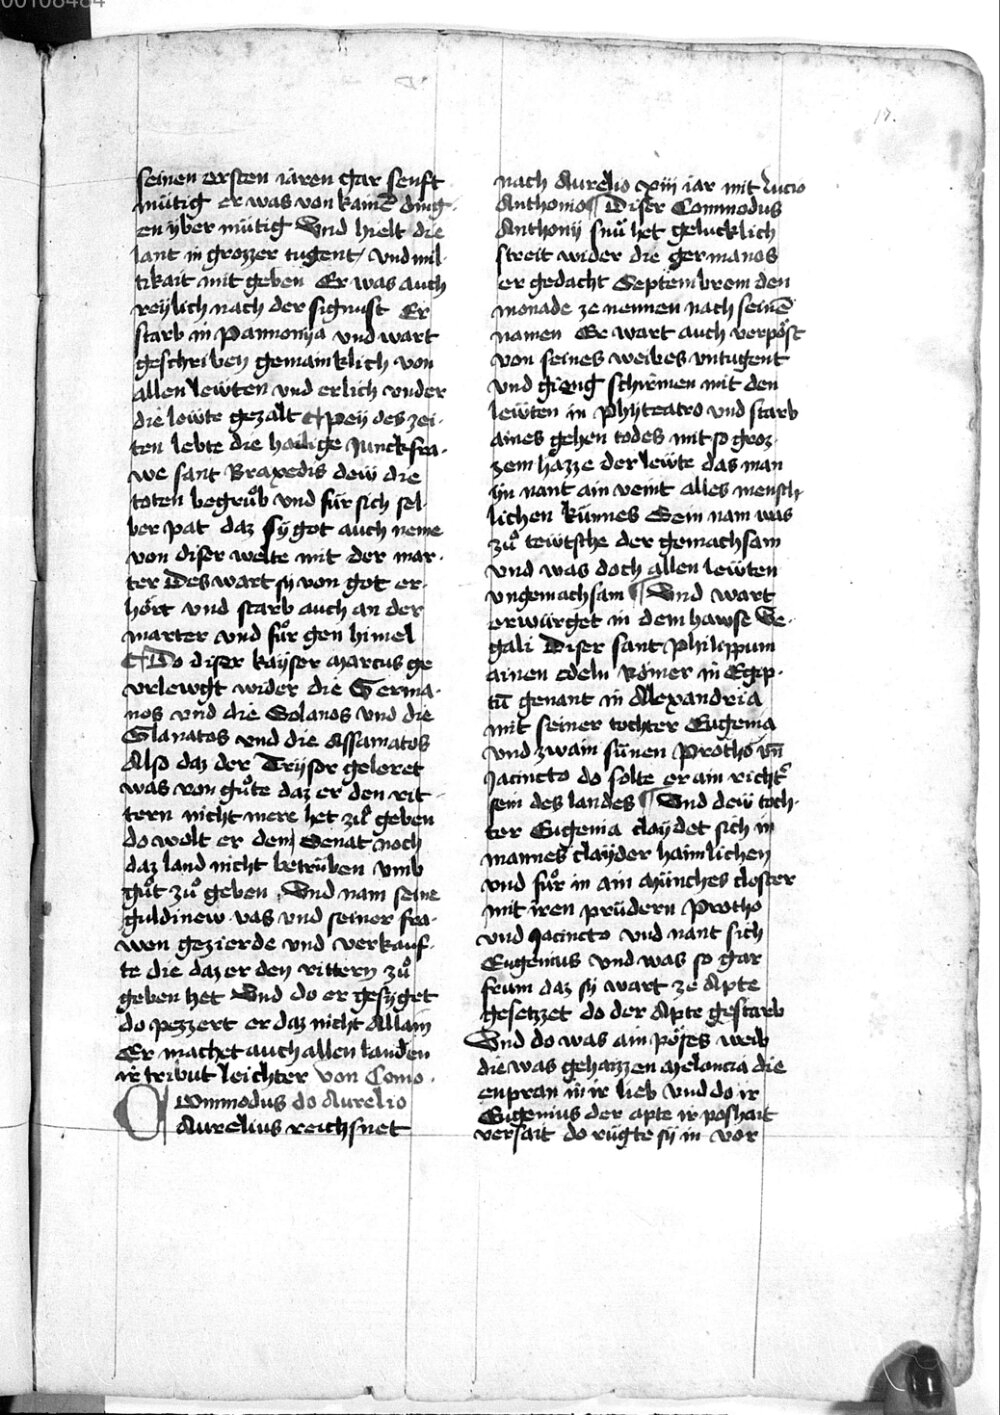 00108484
17.
seinen ersten iaren gar senft
mütig er was von kainē ding
en yber mütig Vnd hielt die
lant in grozzer tugent vnd mil
tikait mit geben Er was auch
reylich nach der signust Er
starb in Pannonya vnd wart
geschriben gemainklich von
allen lewten vnd erlich vnder
die lewte gezalt ¶ Pey des zei
ten lebte die hailige Junckfra
we sant Braxedis dew die
toten begrůb vnd für sich sel
ber pat daz sy got auch neme
von diser welte mit der mar
ter Des wart sy von got er
hört vnd starb auch an der
marter vnd fůr gen himel
¶ Do diser kayser Marcus ge
vrlewgt wider die Germa
nos vnd die Solanos vnd die
Slanatos vnd die Assamatos
Also daz der Tryser geleret
was von gůte daz er den rit
tern nicht mere het zů geben
do wolt er dem Senat noch
daz land nicht betrüben vmb
gůt zů geben Vnd nam seine
guldinew vas vnd seiner fra
wen gezierde vnd verkauf
te die daz er den rittern zů
geben het Vnd do er gesyget
do pezzert er daz nicht Allain
Er machet auch allen landen
ir tribut leichter von Como
Commodus do Aurelio
Aurelius reichsnet
nach Aurelio xiii iar mit Lucio
Anthonio ¶ Diser Commodus
Anthonij snů het gelucklich
streit wider die germanos
er gedacht Septembrem den
monade ze nennen nach seinē
namen Er wart auch verpöst
von seines weibes vntugent
vnd gieng schirmen mit den
lewten in phyteatro vnd starb
aines gehen todes mit so groz
zem hazze der lewte das man
yn nant ain veint alles mensch
lichen künnes Sein nam was
zů tewtsche der gemachsam
vnd was doch allen lewten
vngemachsam ¶ Vnd wart
erwürget in dem hawse Ve
gali Diser sant Philippum
ainen edeln Römer in Egip
tū genant in Alexandria
mit seiner tochter Eugenia
vnd zwain sünen Protho vn̄
Jacincto do solte er ain richt'
sein des landes ¶ Vnd dew toch
ter Eugenia claydet sich in
mannes clayder haimlichen
vnd fůr in ain münches closter
mit iren prüdern Protho
vnd Jacincto vnd nant sich
Eugenius vnd was so gar
frum daz sy wart ze Apte
gesetzzet do der Apte gestarb
Vnd do was ain pöses weib
die was gehaizzen Melancia die
enpran in ir lieb vnd do ir
Eugenius der apte ir poshait
versait do rügte sy in vor